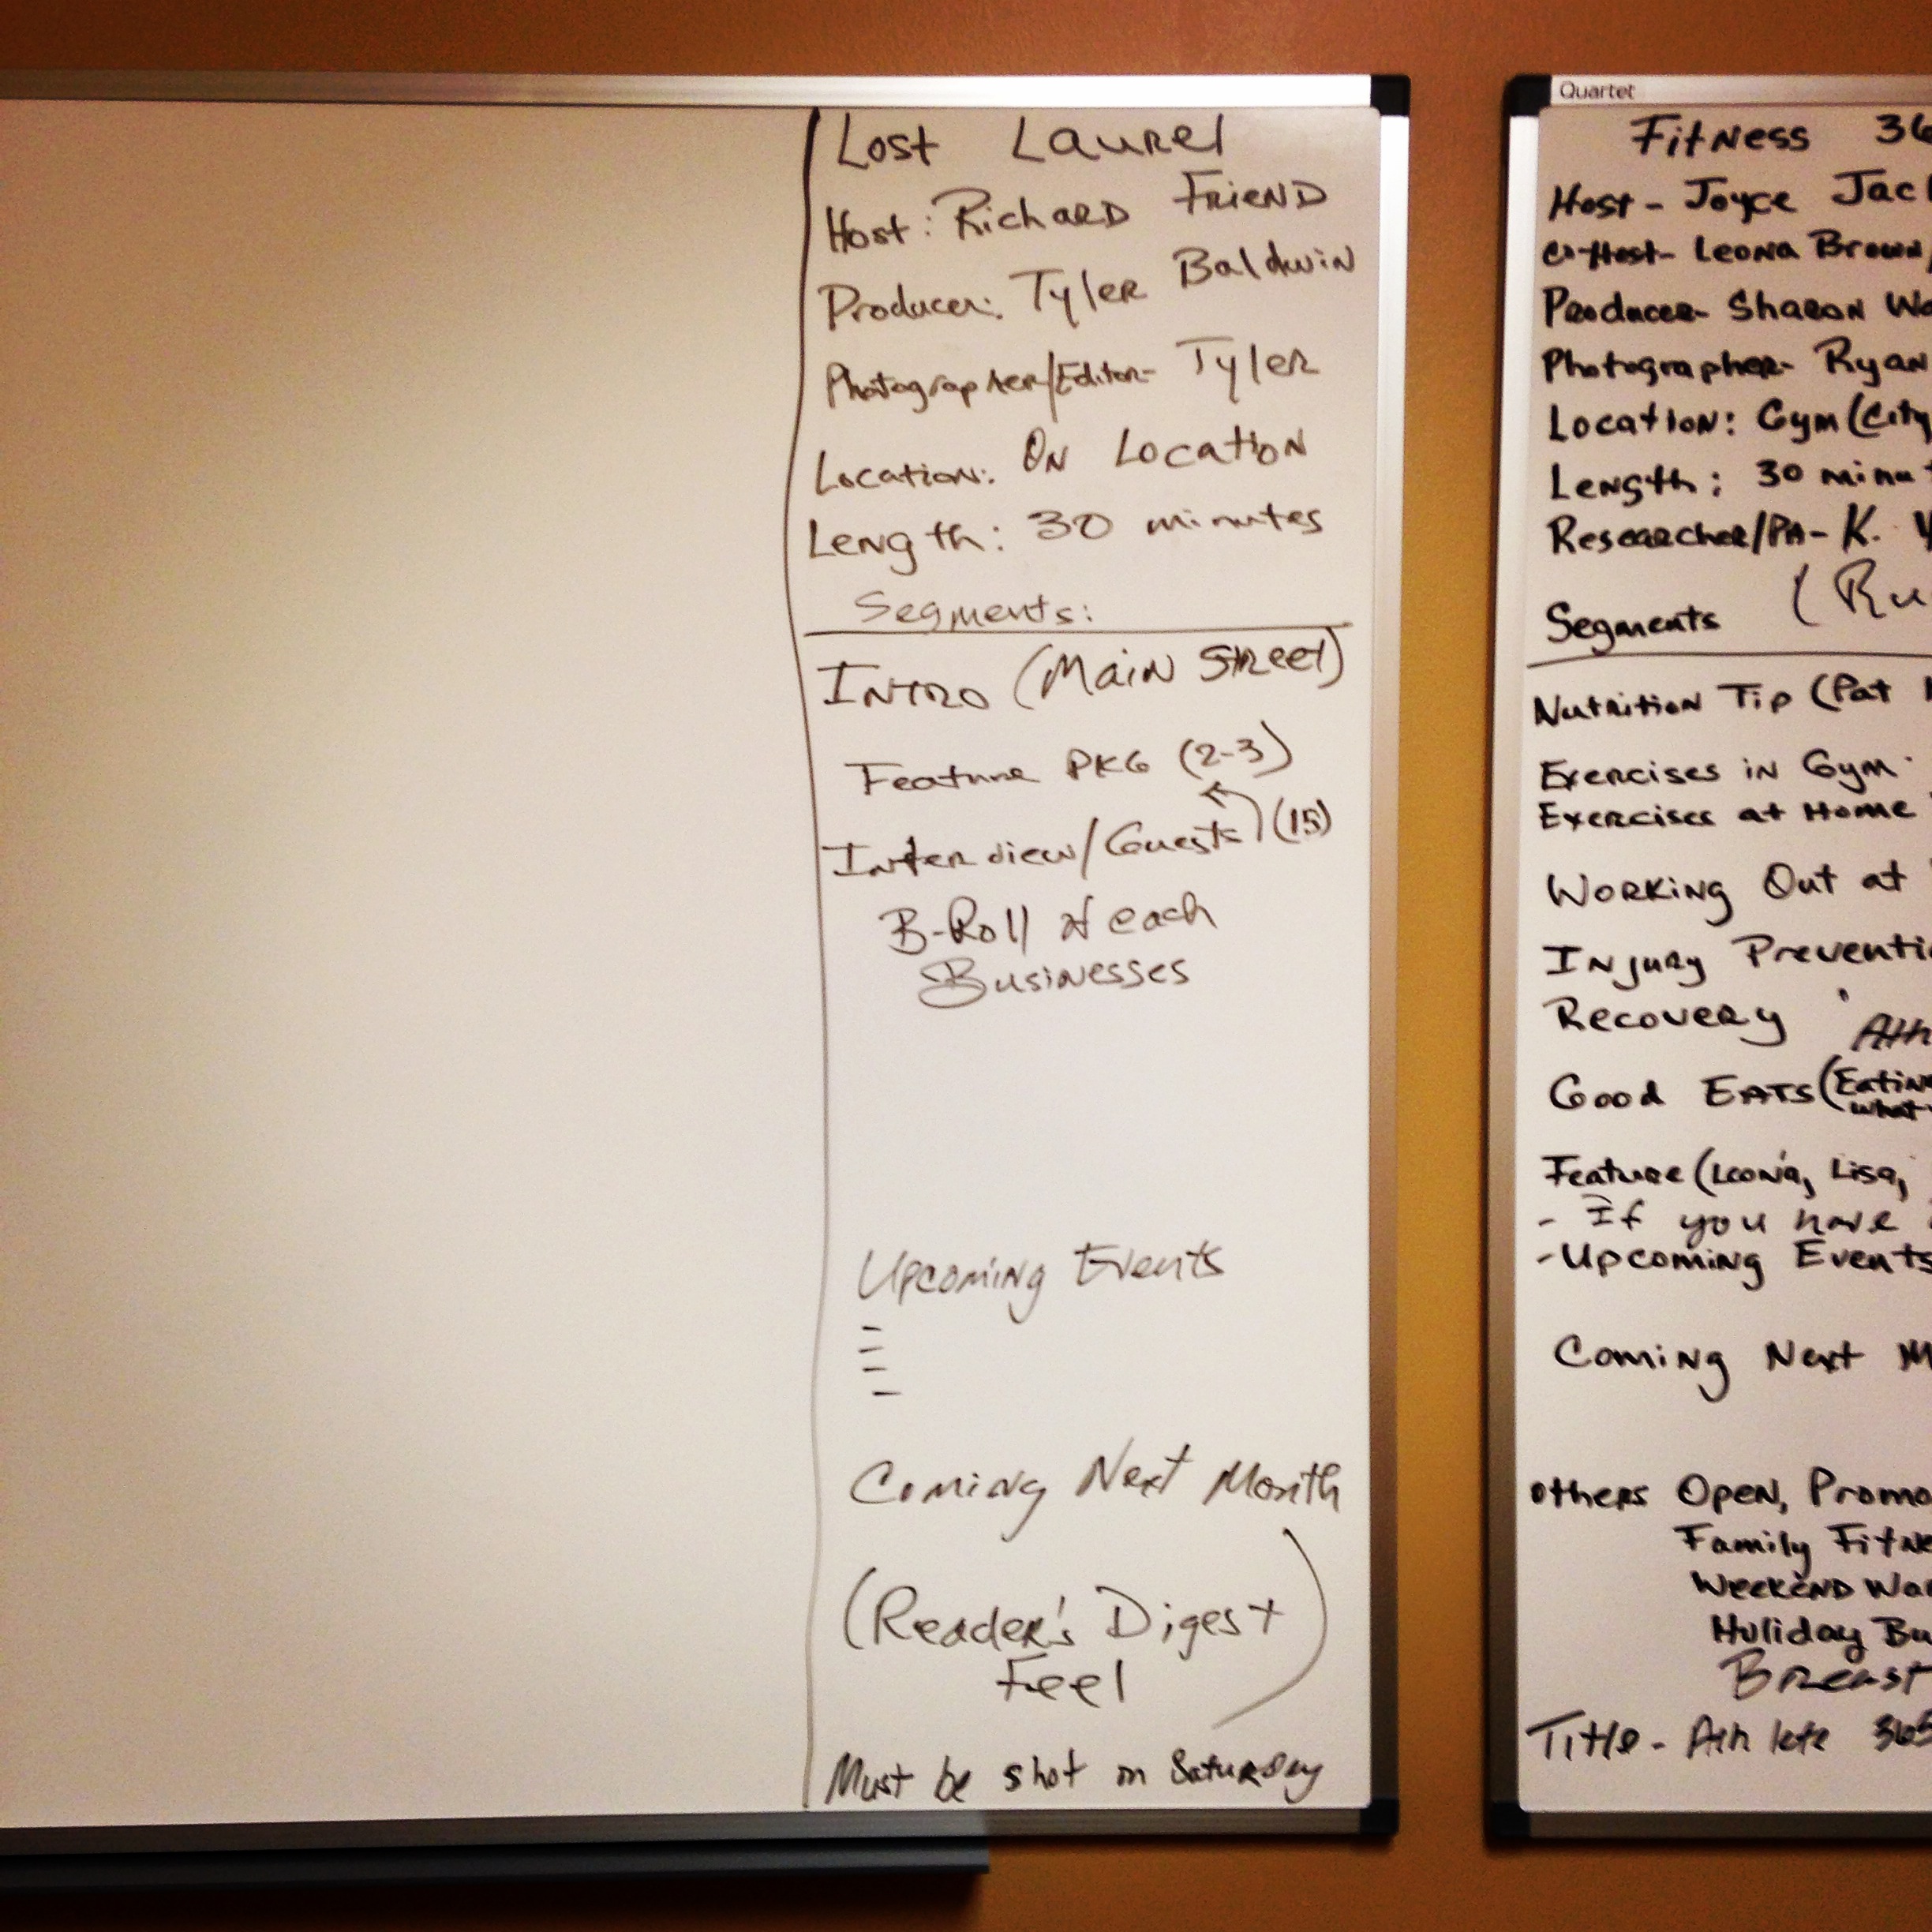 Lost Laurel
Host: Richard Friend
Producer: Tyler Baldwin
Photographer/Editor- Tyler
Location: On Location
Length: 30 minutes
Segments:
Intro (Main Street)
Feature PKG (2-3)
Interview/Guests (15)
B-Roll of each
Businesses
Upcoming Events
-
-
-
-
Coming Next Month
(Reader's Digest
Feel
Must be shot on Saturday
Quartet
Fitness 36
Host- Joyce Jac
Co-Host- Leona Brown/
Producer- Sharon Wa
Photographer- Ryan
Location: Gym (City
Length: 30 minut
Researcher/PA- K.
(Ru
Segments
Nutrition Tip (Pat
Exercises in Gym
Exercises at Home
Working Out at
Injury Preventi
Recovery
Ath
Good Eats (Eating
what
Feature (Leona, Lisa,
- If you have
-Upcoming Events
Coming Next M
Others Open, Promo
Family Fitne
Weekend War
Holiday Bu
Breast
Title- Athlete 365